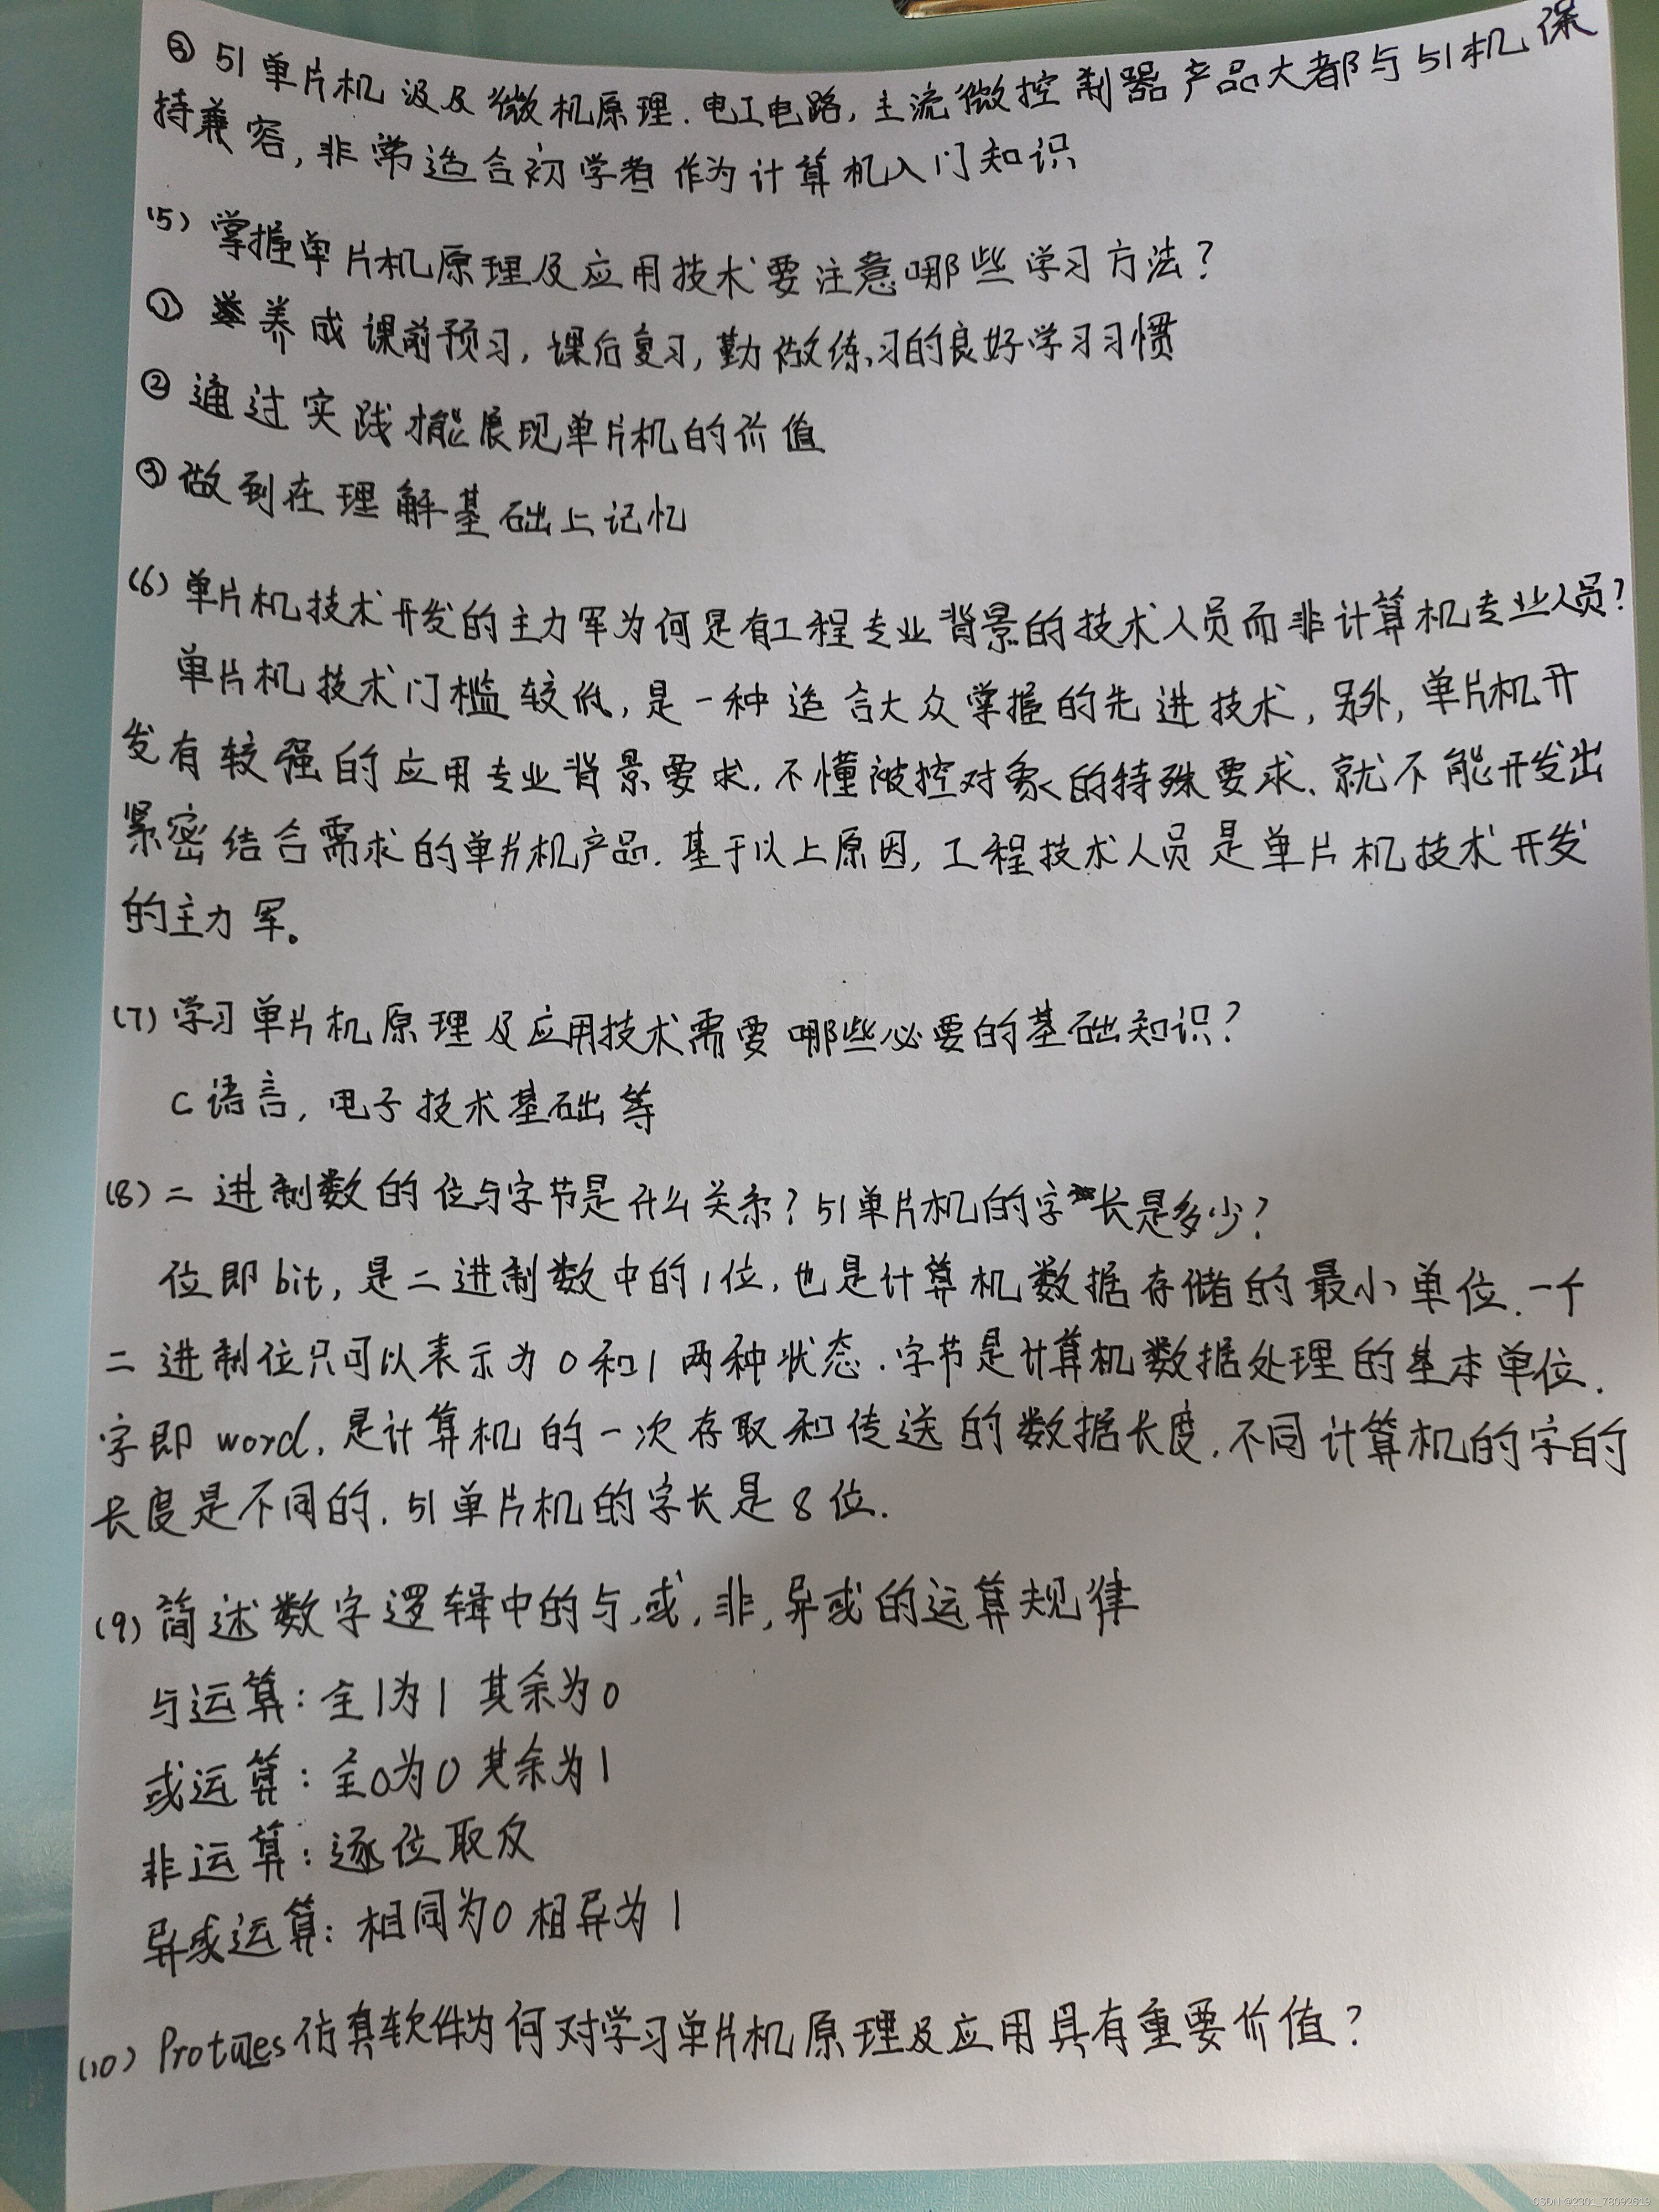 ③ 51单片机汲及微机原理.电工电路,主流微控制器产品大都与51机保
持兼容,非常适合初学者作为计算机入门知识
(5) 掌握单片机原理及应用技术要注意哪些学习方法?
① 养成课前预习,课后复习,勤做练习的良好学习习惯
② 通过实践才能展现单片机的价值
③ 做到在理解基础上记忆
(6) 单片机技术开发的主力军为何是有工程专业背景的技术人员而非计算机专业人员?
单片机技术门槛较低,是一种适合大众掌握的先进技术,另外,单片机开
发有较强的应用专业背景要求.不懂被控对象的特殊要求、就不能开发出
紧密结合需求的单片机产品.基于以上原因,工程技术人员是单片机技术开发
的主力军。
(7) 学习单片机原理及应用技术需要哪些必要的基础知识?
C语言,电子技术基础等
(8) 二进制数的位与字节是什么关系?51单片机的字长是多少?
位即bit,是二进制数中的1位,也是计算机数据存储的最小单位.一个
二进制位只可以表示为0和1两种状态.字节是计算机数据处理的基本单位.
字即word,是计算机的一次存取和传送的数据长度,不同计算机的字的
长度是不同的.51单片机的字长是8位.
(9) 简述数字逻辑中的与,或,非,异或的运算规律
与运算:全1为1 其余为0
或运算:全0为0 其余为1
非运算:逐位取反
异或运算:相同为0 相异为1
(10) Protues仿真软件为何对学习单片机原理及应用具有重要价值?
CSDN @2301_78092619